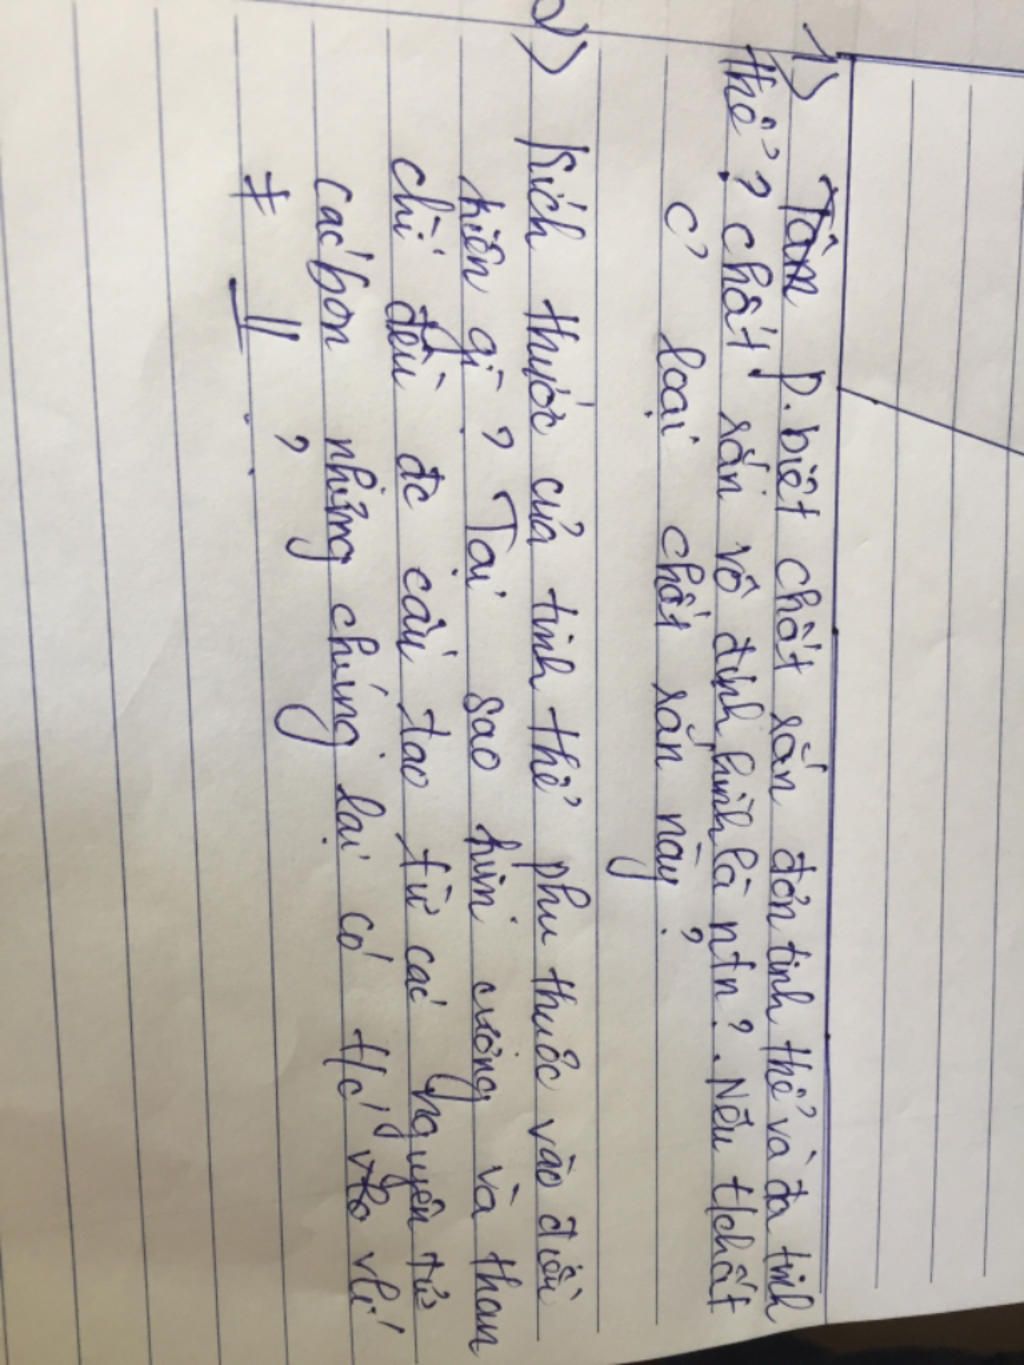 1) Tâm p.biệt chất rắn đơn tinh thể và đa tinh
thể? chất rắn vô định hình là ntn?. Nếu t/chất
c? loại chất rắn này?
2) Kích thước của tinh thể phụ thuộc vào điều
kiện gì? Tại sao kim cương và than
chì đều đc cấu tạo từ các nguyên tử
cácbon nhưng chúng lại có t/c vlí
≠ ?